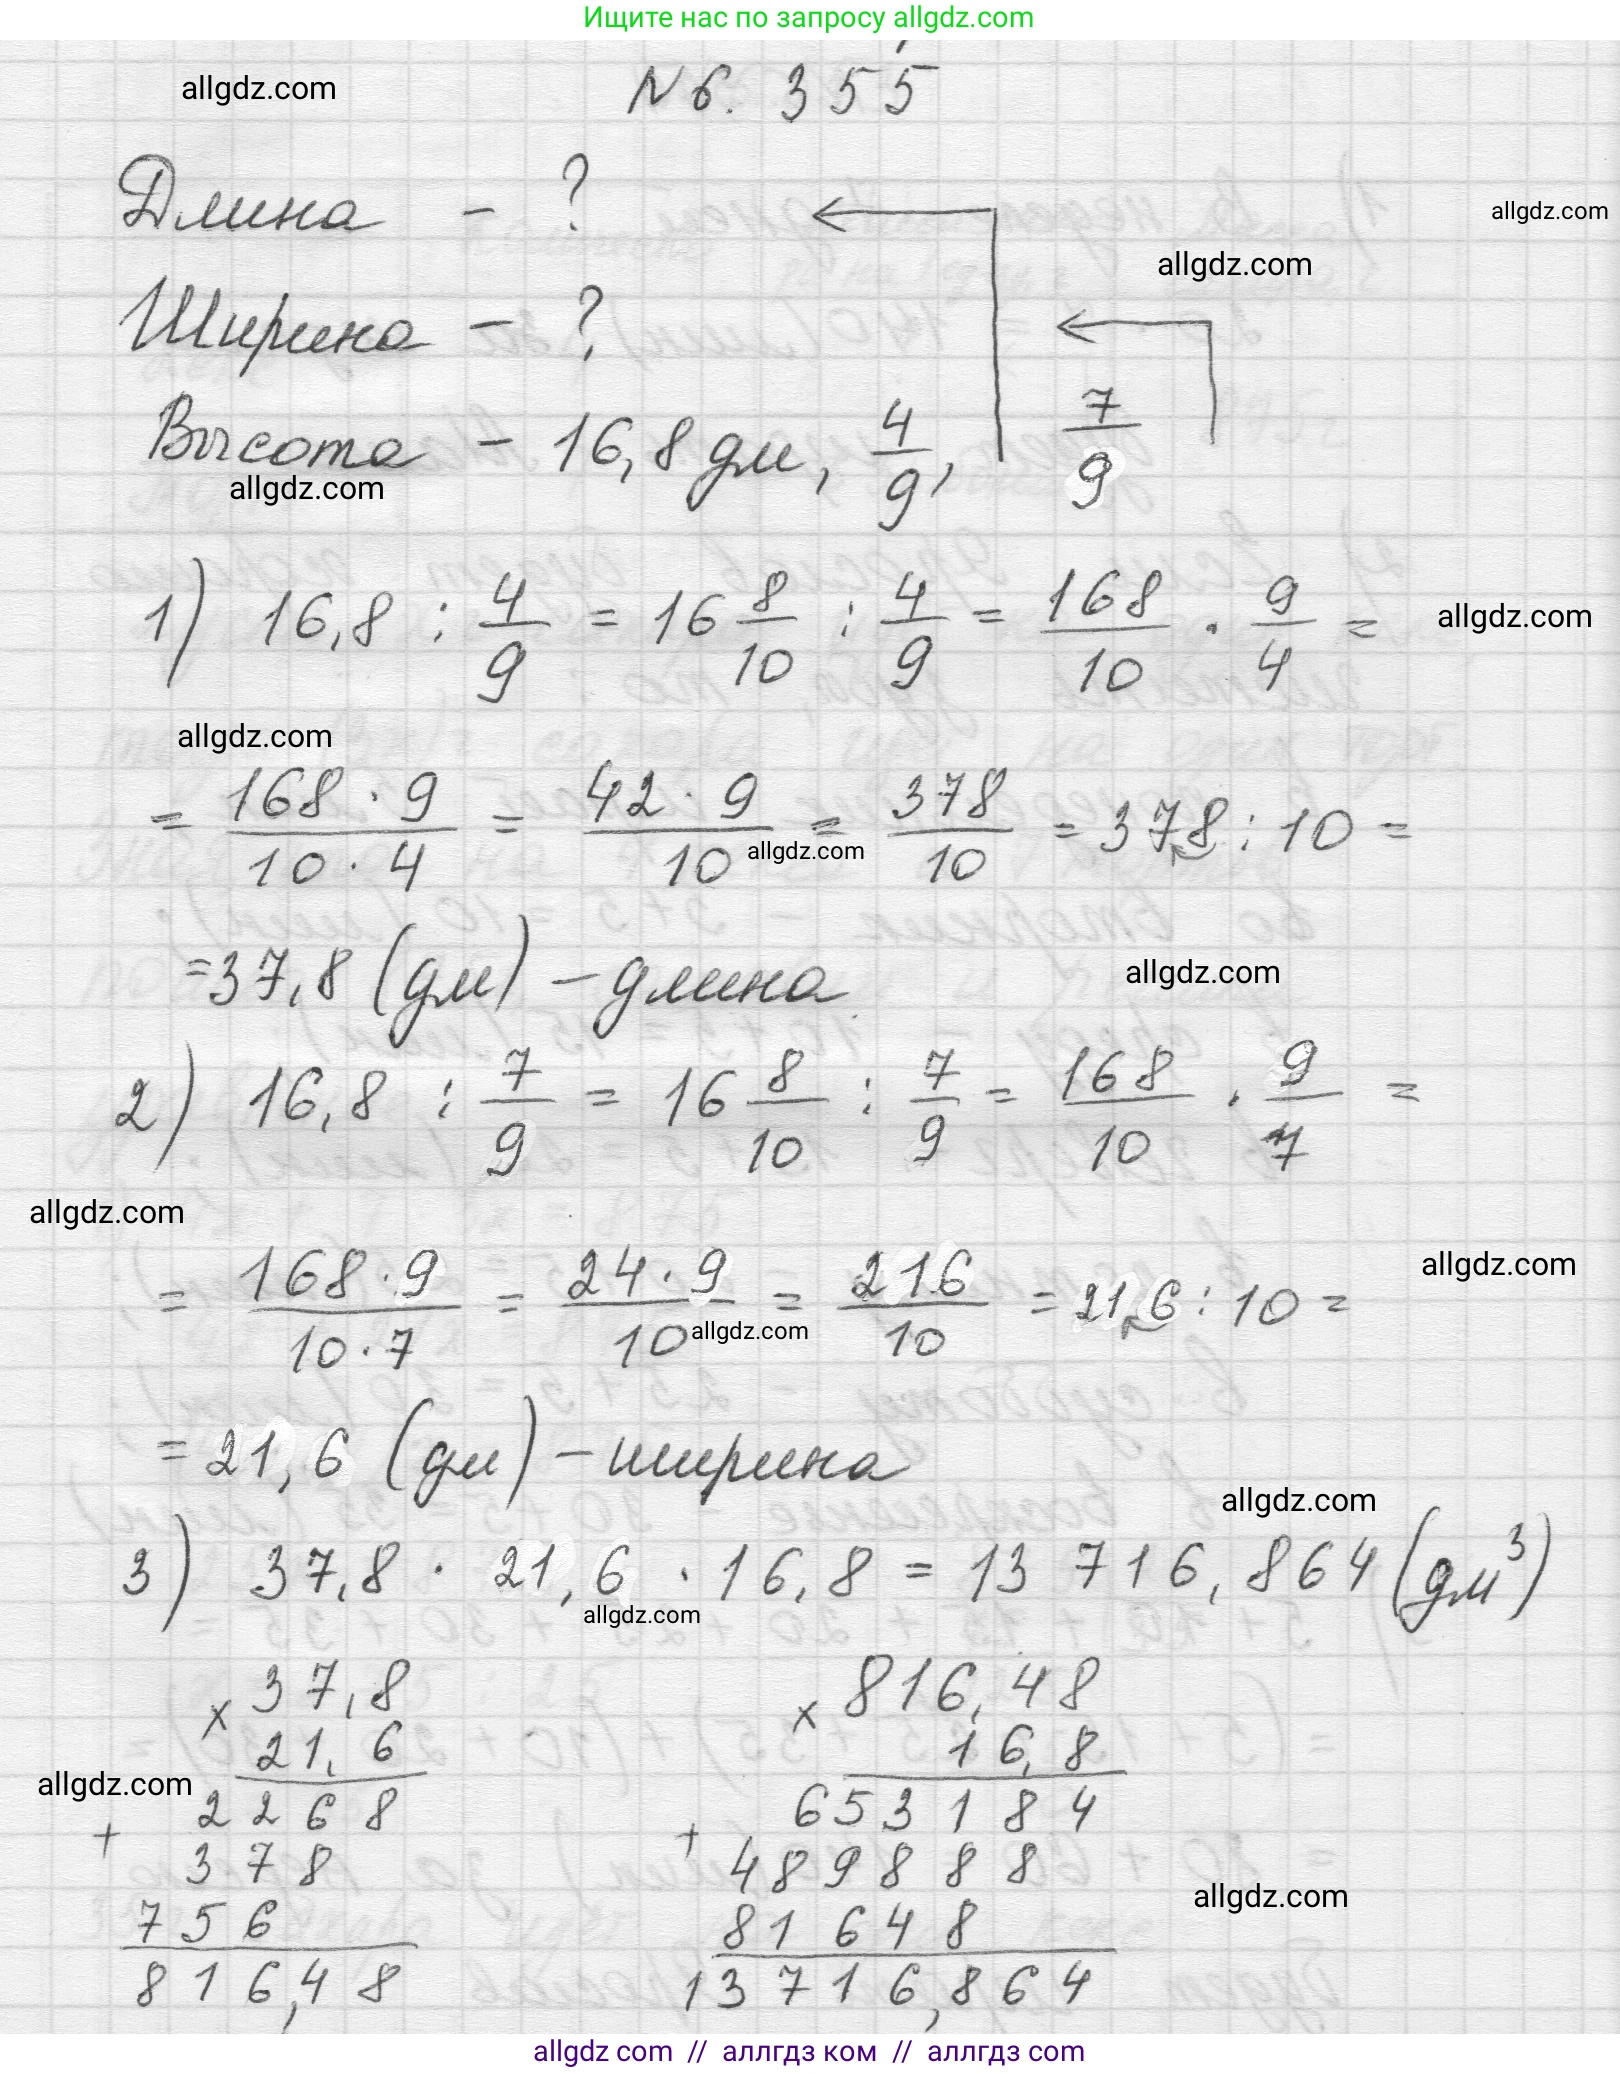 Ищите нас по запросу allgdz.com
allgdz.com
№ 6. 355
Длина - ?
allgdz.com
allgdz.com
Ширина - ?
Высота - 16,8 дм, 4/9, 7/9
allgdz.com
1) 16,8 : 4/9 = 16 8/10 : 4/9 = 168/10 · 9/4 =
allgdz.com
allgdz.com
= 168 · 9/10 · 4 = 42 · 9/10 = 378/10 = 378 : 10 =
allgdz.com
= 37,8 (дм) - длина
allgdz.com
2) 16,8 : 7/9 = 16 8/10 : 7/9 = 168/10 · 9/7 =
allgdz.com
allgdz.com
= 168 · 9/10 · 7 = 24 · 9/10 = 216/10 = 216 : 10 =
allgdz.com
= 21,6 (дм) - ширина
allgdz.com
3) 37,8 · 21,6 · 16,8 = 13 716,864 (дм³)
allgdz.com
× 37,8
21,6
allgdz.com
2268
+ 378
756
816,48
× 816,48
16,8
653184
+ 489888
81648
13716,864
allgdz.com
allgdz com // аллгдз ком // аллгдз com